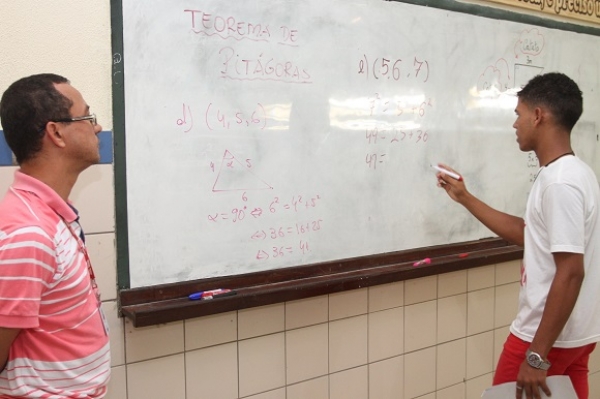 TEOREMA DE
PITÁGORAS
d) (4, 5, 6)
4 α 5
6
α = 90° ⇔ 6² = 4² + 5²
⇔ 36 = 16 + 25
⇔ 36 = 41
e) (5, 6, 7)
7² = 5² + 6²
49 = 25 + 36
49 =